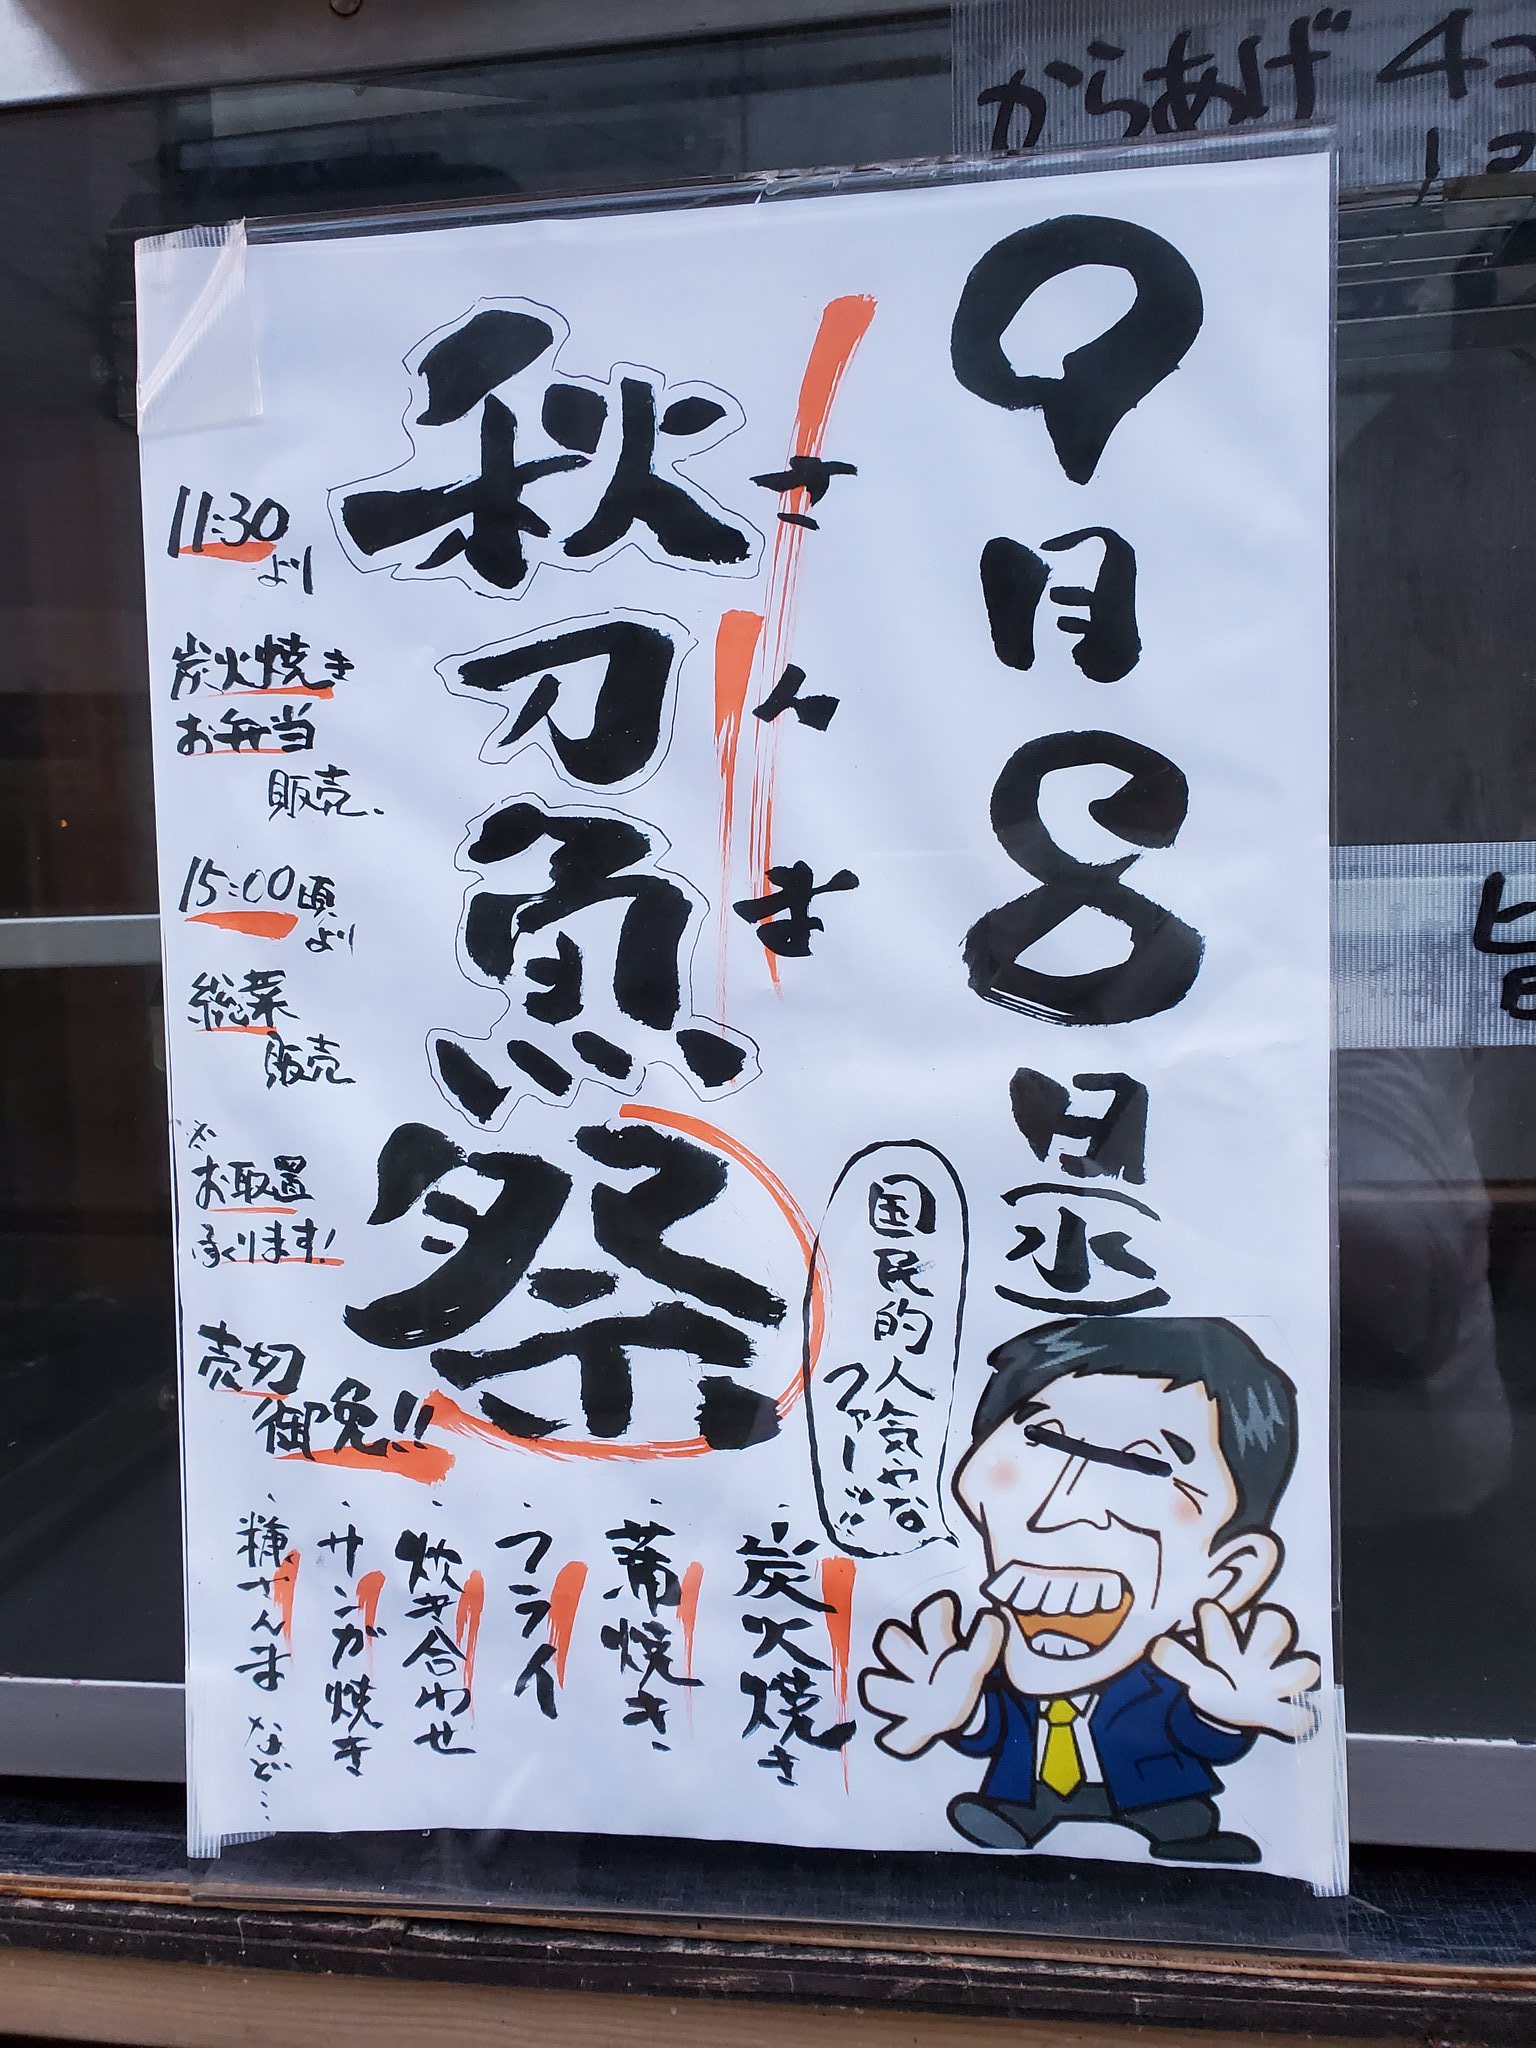 からあげ 4コ
9月8日(水)
さんま
秋刀魚祭
11:30
より
炭火焼き
お弁当
販売、
15:00頃
より
総菜
販売
※
お取置
承ります!
売切
御免!!
国民的人気やな
ファ〜じゃ!!
・炭火焼き
・蒲焼き
・フライ
・炊き合わせ
・サンが焼き
・糠さんま など…